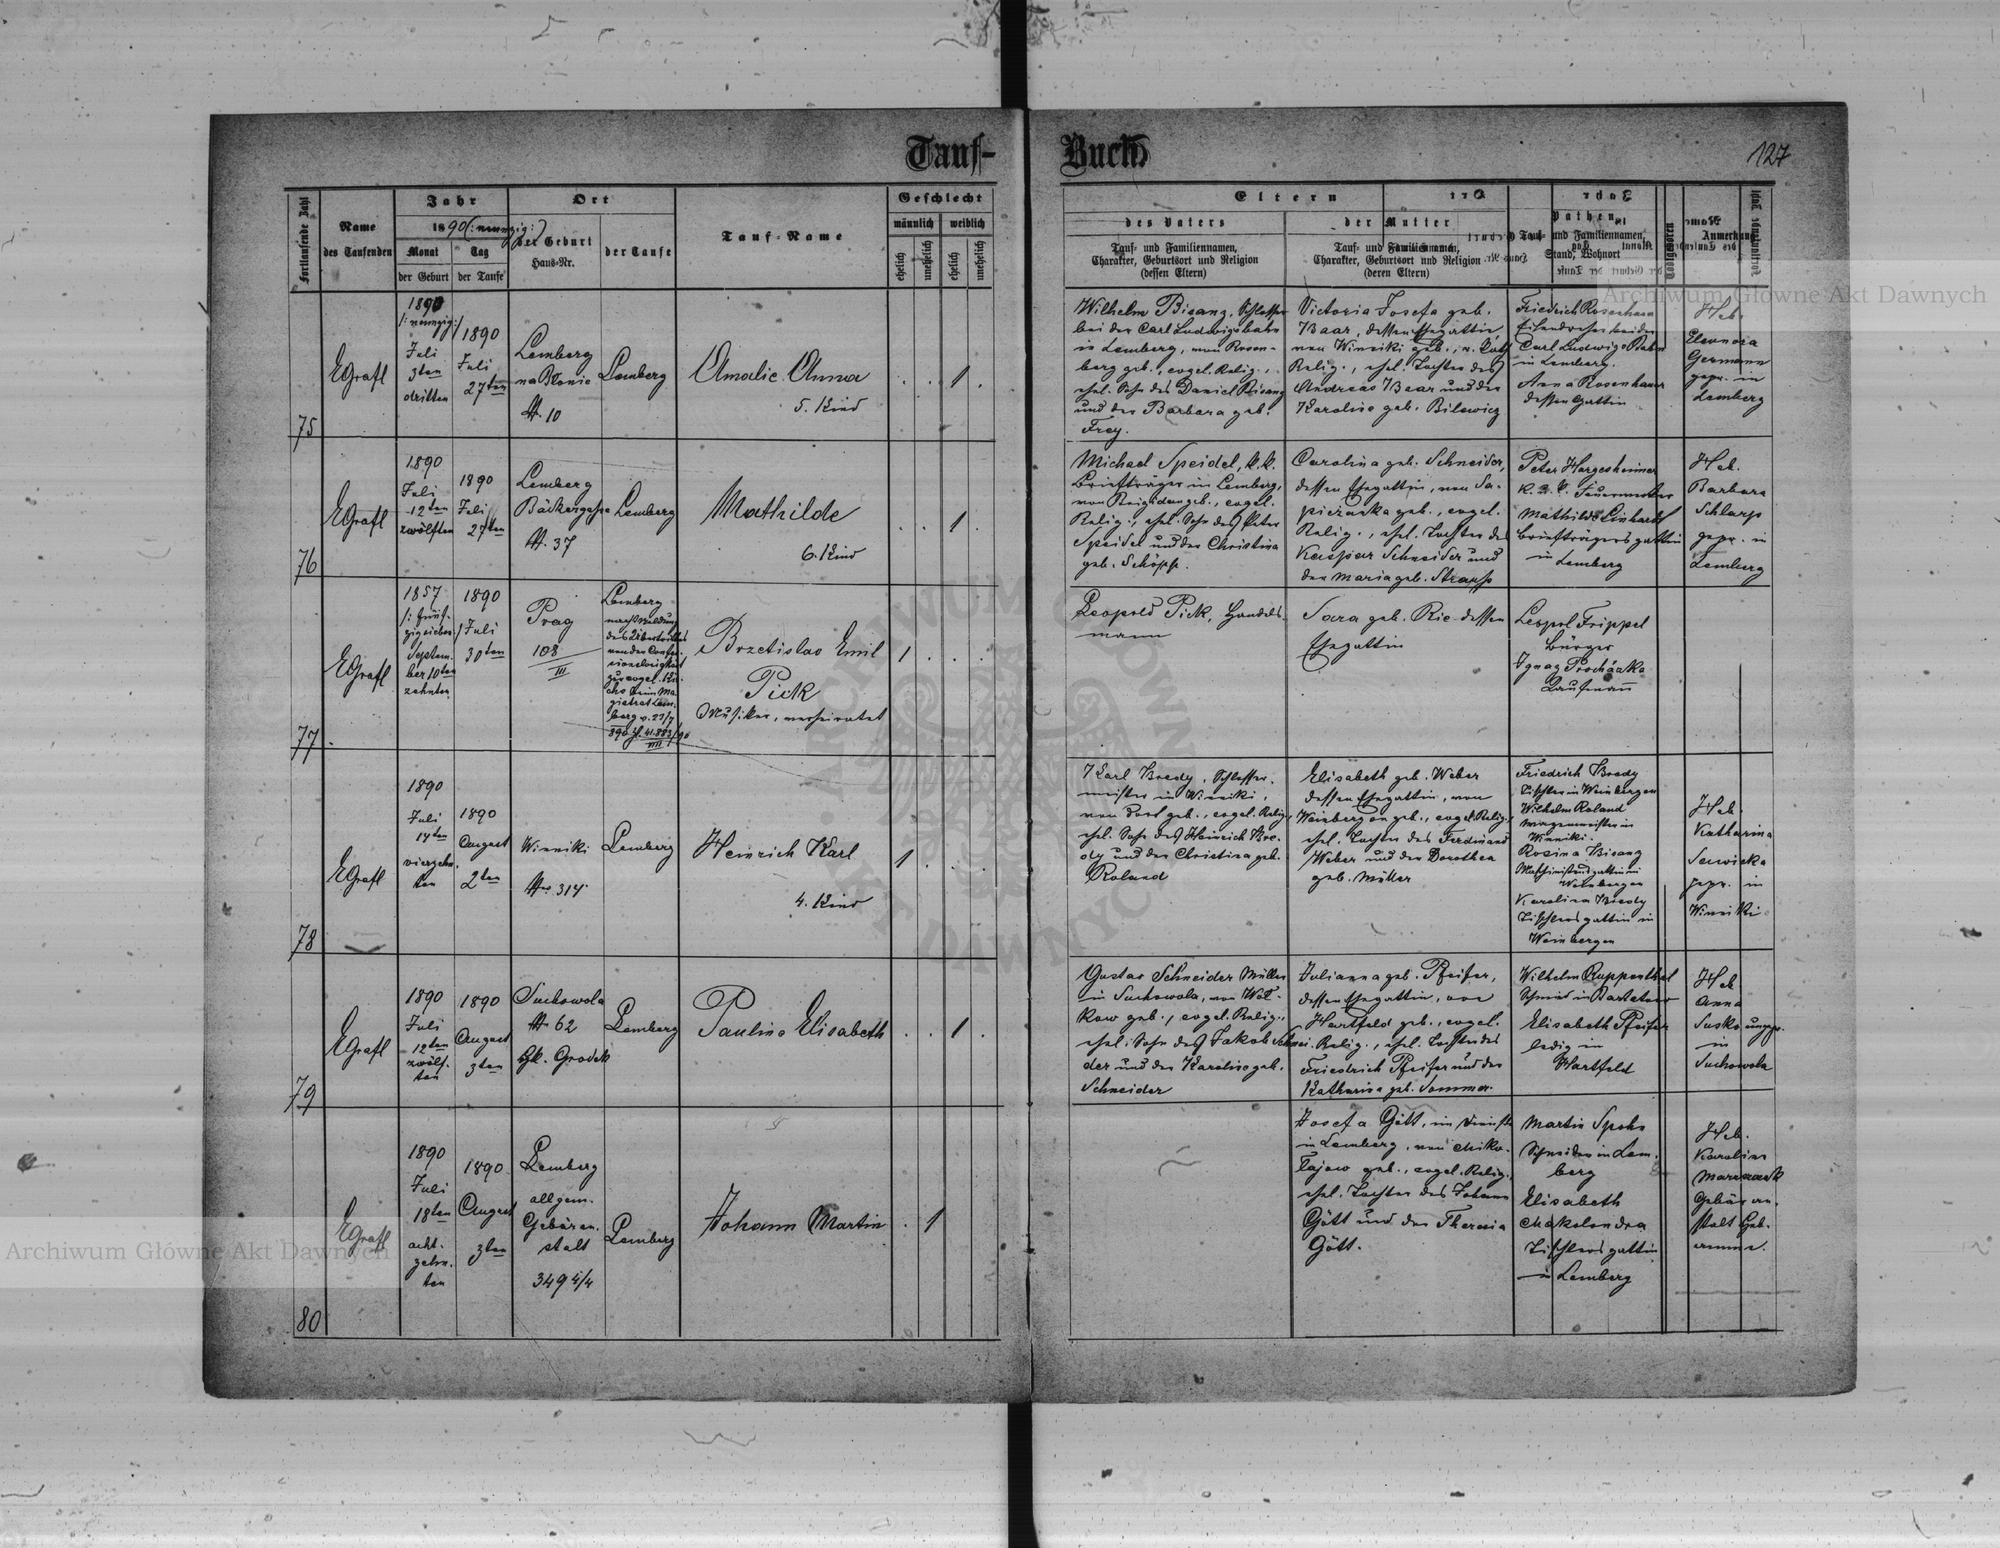 Tauf-
Buch
127
Fortlaufende Zahl
Name
des Taufenden
Jahr
1890 (:neunzig:)
Monat
der Geburt
Tag
der Taufe
Ort
der Geburt
Haus-Nr.
der Taufe
Tauf-Name
Geschlecht
männlich
weiblich
ehelich
unehelich
ehelich
unehelich
Eltern
des Vaters
Tauf- und Familiennamen,
Charakter, Geburtsort und Religion
(dessen Eltern)
der Mutter
Tauf- und Familiennamen,
Charakter, Geburtsort und Religion
(deren Eltern)
Pathen
Tauf- und Familiennamen,
Stand, Wohnort
Anmerkung
75
EGrafl
1890
/:neunzig:/
Juli
3ten
dritten
1890
Juli
27ten
Lemberg
na Blonie
N. 10
Lemberg
Amalie Anna
5. Kind
1
Wilhelm Bisanz, Schlosser
bei der Carl Ludwigsbahn
in Lemberg, von Rosen-
berg geb., evgel. Relig.,
ehel. Sohn des Daniel Bisanz
und der Barbara geb.
Frey.
Victoria Josefa geb.
Baar, dessen Ehegattin
von Winniki geb.,
Relig., ehel. Tochter des
Andreas Baar und der
Karoline geb. Bilewicz
Friedrich Rosenhauer
Eisendreher bei der
Carl Ludwigs Bahn
in Lemberg.
Anna Rosenhauer
dessen Gattin
Heb.
Eleonora
Germann
gepr. in
Lemberg
76
EGrafl
1890
Juli
12ten
zwölften
1890
Juli
27ten
Lemberg
Bäckergasse
N. 37
Lemberg
Mathilde
6. Kind
1
Michael Speidel, k.k.
Briefträger in Lemberg,
von Reigidau geb., evgel.
Relig., ehel. Sohn des Peter
Speidel und der Christina
geb. Schöpp.
Carolina geb. Schneider,
dessen Ehegattin, von Sa-
piezanka geb., evgel.
Relig., ehel. Tochter des
Kaspar Schneider und
der Maria geb. Strapp
Peter Hargesheimer
Mathilde Linhardt
Briefträgersgattin
in Lemberg
Heb.
Barbara
Schlarp
gepr. in
Lemberg
77
EGrafl
1857
/:fünf-
zigsieben:/
Septem-
ber 10ten
zehnten
1890
Juli
30ten
Prag
108
III
Lemberg
nach Meldung
des Übertrittes
von der Confes-
sionslosigkeit
zur evgel. Kir-
che beim Ma-
gistrat Lem-
berg v. 23/7
890 Z. 41.883/90
VIII
Brzetislao Emil
Pick
Musiker, verheiratet
1
Leopold Pick, Handels-
mann
Sara geb. Rie dessen
Ehegattin
Leopol Frippel
Bürger
Ignaz Procházka
Kaufmann
78
EGrafl
1890
Juli
14ten
vierzehn-
ten
1890
August
2ten
Winniki
Nr. 314
Lemberg
Heinrich Karl
4. Kind
1
Karl Bredy, Schlosser-
meister in Winniki,
von dort geb., evgel. Relig.,
ehel. Sohn des Heinrich Bre-
dy und der Christina geb.
Roland
Elisabeth geb. Weber
dessen Ehegattin, von
Weinbergen geb., evgel. Relig.,
ehel. Tochter des Ferdinand
Weber und der Dorothea
geb. Müller
Friedrich Bredy
Tischler in Weinbergen
Wilhelm Roland
Wagenmeister in
Winniki.
Rosina Bisanz
Maschinistensgattin in
Weinbergen
Karolina Bredy
Tischlersgattin in
Weinbergen
Heb.
Katharina
gepr. in
Winniki
79
EGrafl
1890
Juli
12ten
zwölf-
ten
1890
August
3ten
Suchowola
N. 62
Bzk. Grodek
Lemberg
Pauline Elisabeth
1
Gustav Schneider Müller
in Suchowola, von Wol-
kow geb., evgel. Relig.,
ehel. Sohn des Jakob Schnei-
der und der Karoline geb.
Schneider
Julianna geb. Pfeifer,
dessen Ehegattin, von
Hartfeld geb., evgel.
Relig., ehel. Tochter des
Friedrich Pfeifer und der
Katharina geb. Sommer.
Wilhelm Ruppenthal
Schmied in Bartatow
Elisabeth Pfeifer
ledig in
Hartfeld
Heb.
Anna
Susko ungepr.
in
Suchowola
80
EGrafl
1890
Juli
18ten
acht-
zehn-
ten
1890
August
3ten
Lemberg
allgem.
Gebäran-
stalt
349 4/4
Lemberg
Johann Martin
1
Josefa Gött, im Dienste
in Lemberg, von Miko-
lajow geb., evgel. Relig.
ehel. Tochter des Johann
Gött und der Theresia
Gött.
Martin Spohn
Schneider in Lem-
berg
Elisabeth
Makolondra
Tischlersgattin
in Lemberg
Heb.
Karoline
Gebäran-
stalt Heb-
amme.
Archiwum Główne Akt Dawnych
Archiwum Główne Akt Dawnych
ARCHIWUM GŁÓWNE AKT DAWNYCH